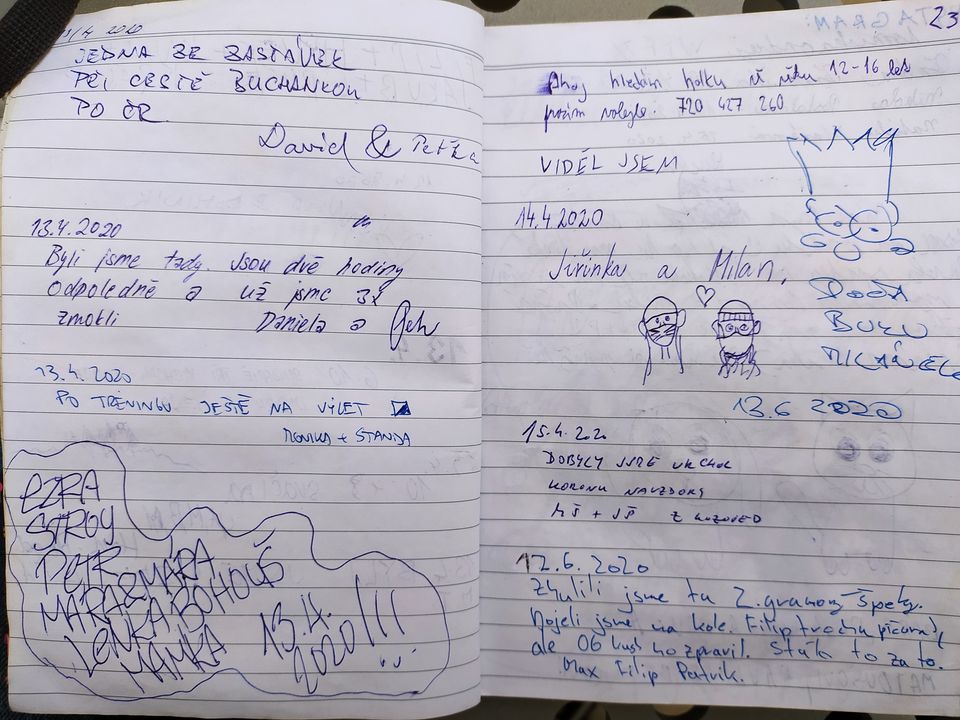 /4 2020
JEDNA ZE ZASTÁVEK
PŘI CESTĚ BUCHANKOU
PO ČR
David & Petra
13.4.2020
Byli jsme tady. Jsou dvě hodiny
odpoledně a už jsme 3x
zmokli Daniela a
13.4.2020
PO TRÉNINGU JEŠTĚ NA VÝLET
MONIKA + STANDA
EZRA
STROY
PETR
MÁRA & MÁRA
LENKA BOHOUŠ
MAMKA 13.4.
2020!!!
23
Ahoj hledám holku ve věku 12-16 let
prosím volejte: 720 427 260
VIDĚL JSEM
14.4 2020
Jiřinka a Milan,
13.6 2020
15.4.2020
DOBYLY JSME VRCHOL
KORONU NAVZDORY
MŠ + JŠ Z
12.6.2020
Zhulili jsme tu 2. špeky.
Dojeli jsme na kole. Filip
ale spravil. Stálo to za to.
Max Filip Patrik.